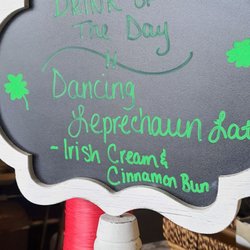 Drink of
The Day
is
Dancing
Leprechaun Lat
- Irish Cream &
Cinnamon Bun